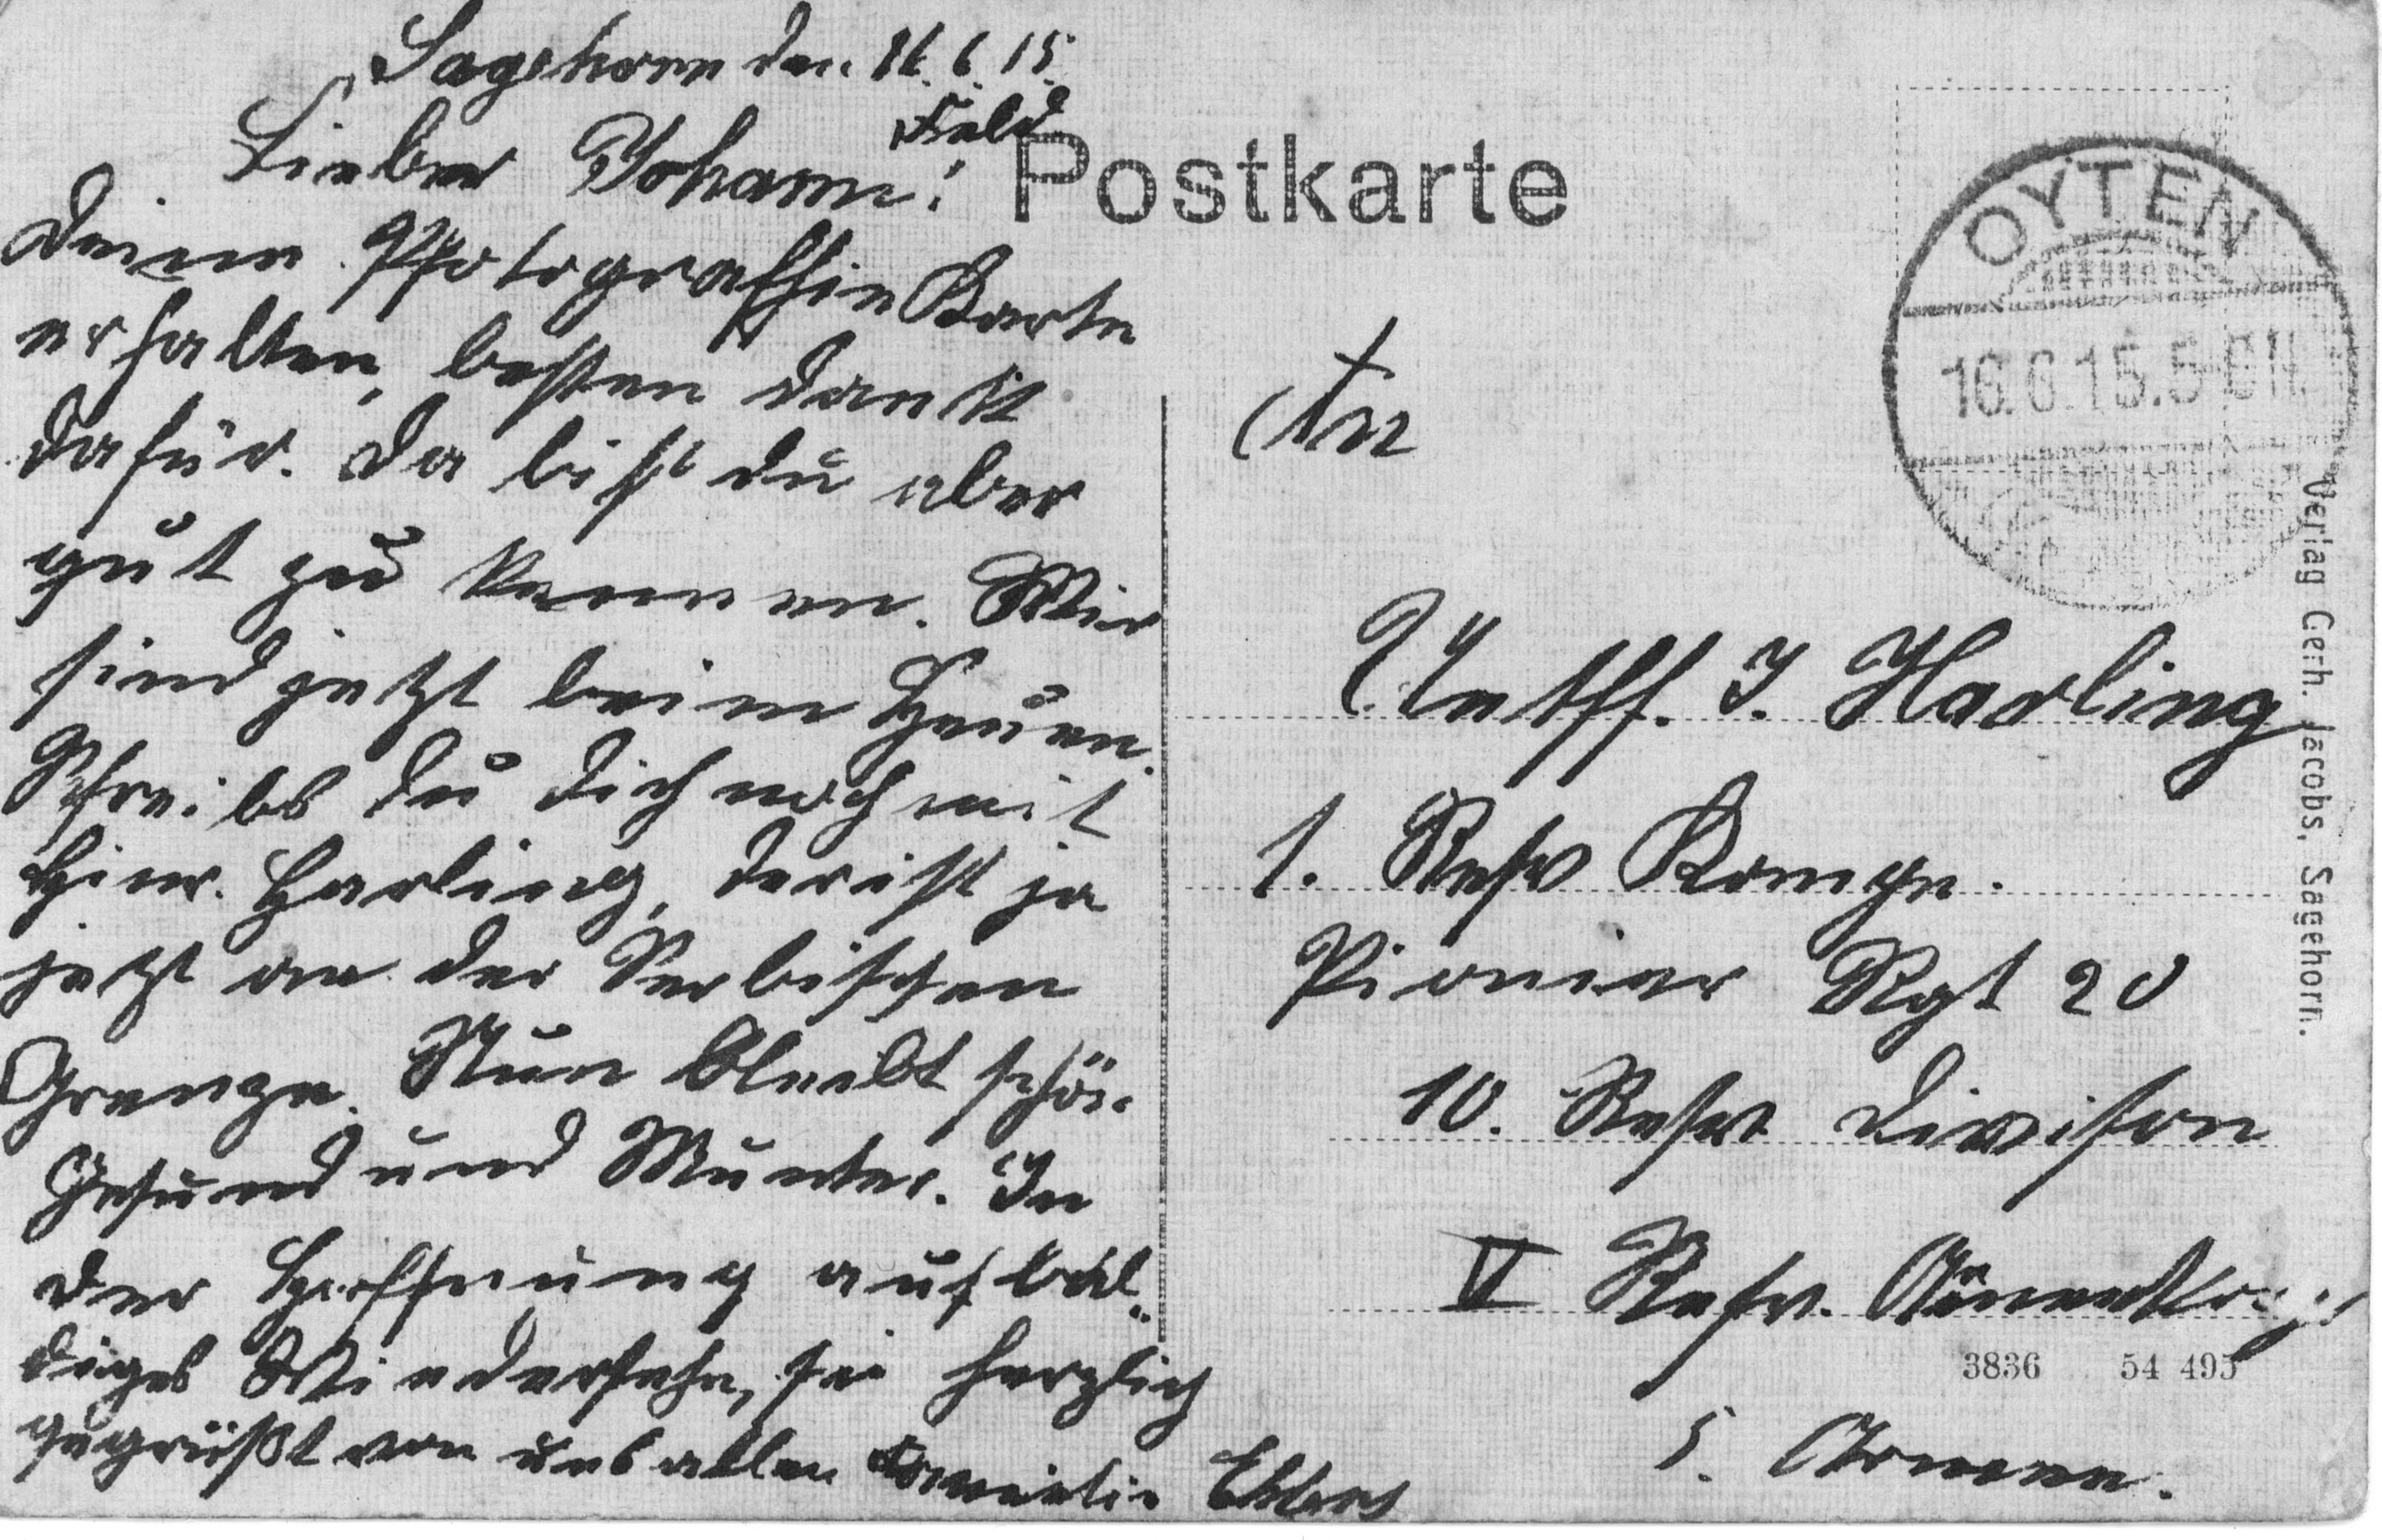 Sagehorn den 16.6.15.
Lieber Johann!
Deine Photografhie Karte
erhalten, besten Dank
dafür. Da bist du aber
gut zu kennen. Wir
sind jetzt beim Heuen.
Schreibs du dich noch mit
Hinr. Harling, der ist ja
jetzt an der Serbischen
Grenze. Nun bleibt schön
Gesund und Munter. In
der Hoffnung auf bal-
diges Wiedersehn, sei herzlich
gegrüßt von uns allen Familie Ehlers
Feld
Postkarte
An
Untff. J. Harling
1. Resv Kompn.
Pionier Rgt 20
10. Resv. Divison
V Resv. Armeekorps
5. Armee.
OYTEN
16.6.15.5-6N.
Verlag Gerh. Jacobs, Sagehorn.
3836 54 495